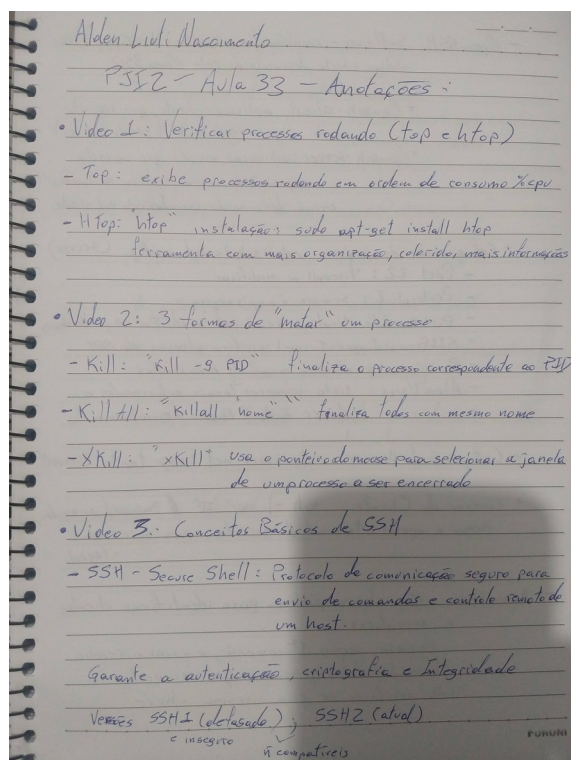 Alden Liuti Nascimento
PJI2 - Aula 33 - Anotações:
• Video 1: Verificar processos rodando (top e htop)
- Top: exibe processos rodando em ordem de consumo %cpu
- HTop: "htop" instalação: sudo apt-get install htop
ferramenta com mais organização, colorido, mais informações
• Video 2: 3 formas de "matar" um processo
- Kill: "Kill -9 PID" finaliza o processo correspondente ao PID
- Kill All: "Killall "nome"" finaliza todos com mesmo nome
- XKill: "xKill" usa o ponteiro do mouse para selecionar a janela
de um processo a ser encerrado
• Video 3: Conceitos Básicos de SSH
- SSH - Secure Shell: Protocolo de comunicação seguro para
envio de comandos e controle remoto de
um host.
Garante a autenticação, criptografia e Integridade
Versões SSH1 (defasado); SSH2 (atual)
e inseguro
ñ compatíveis